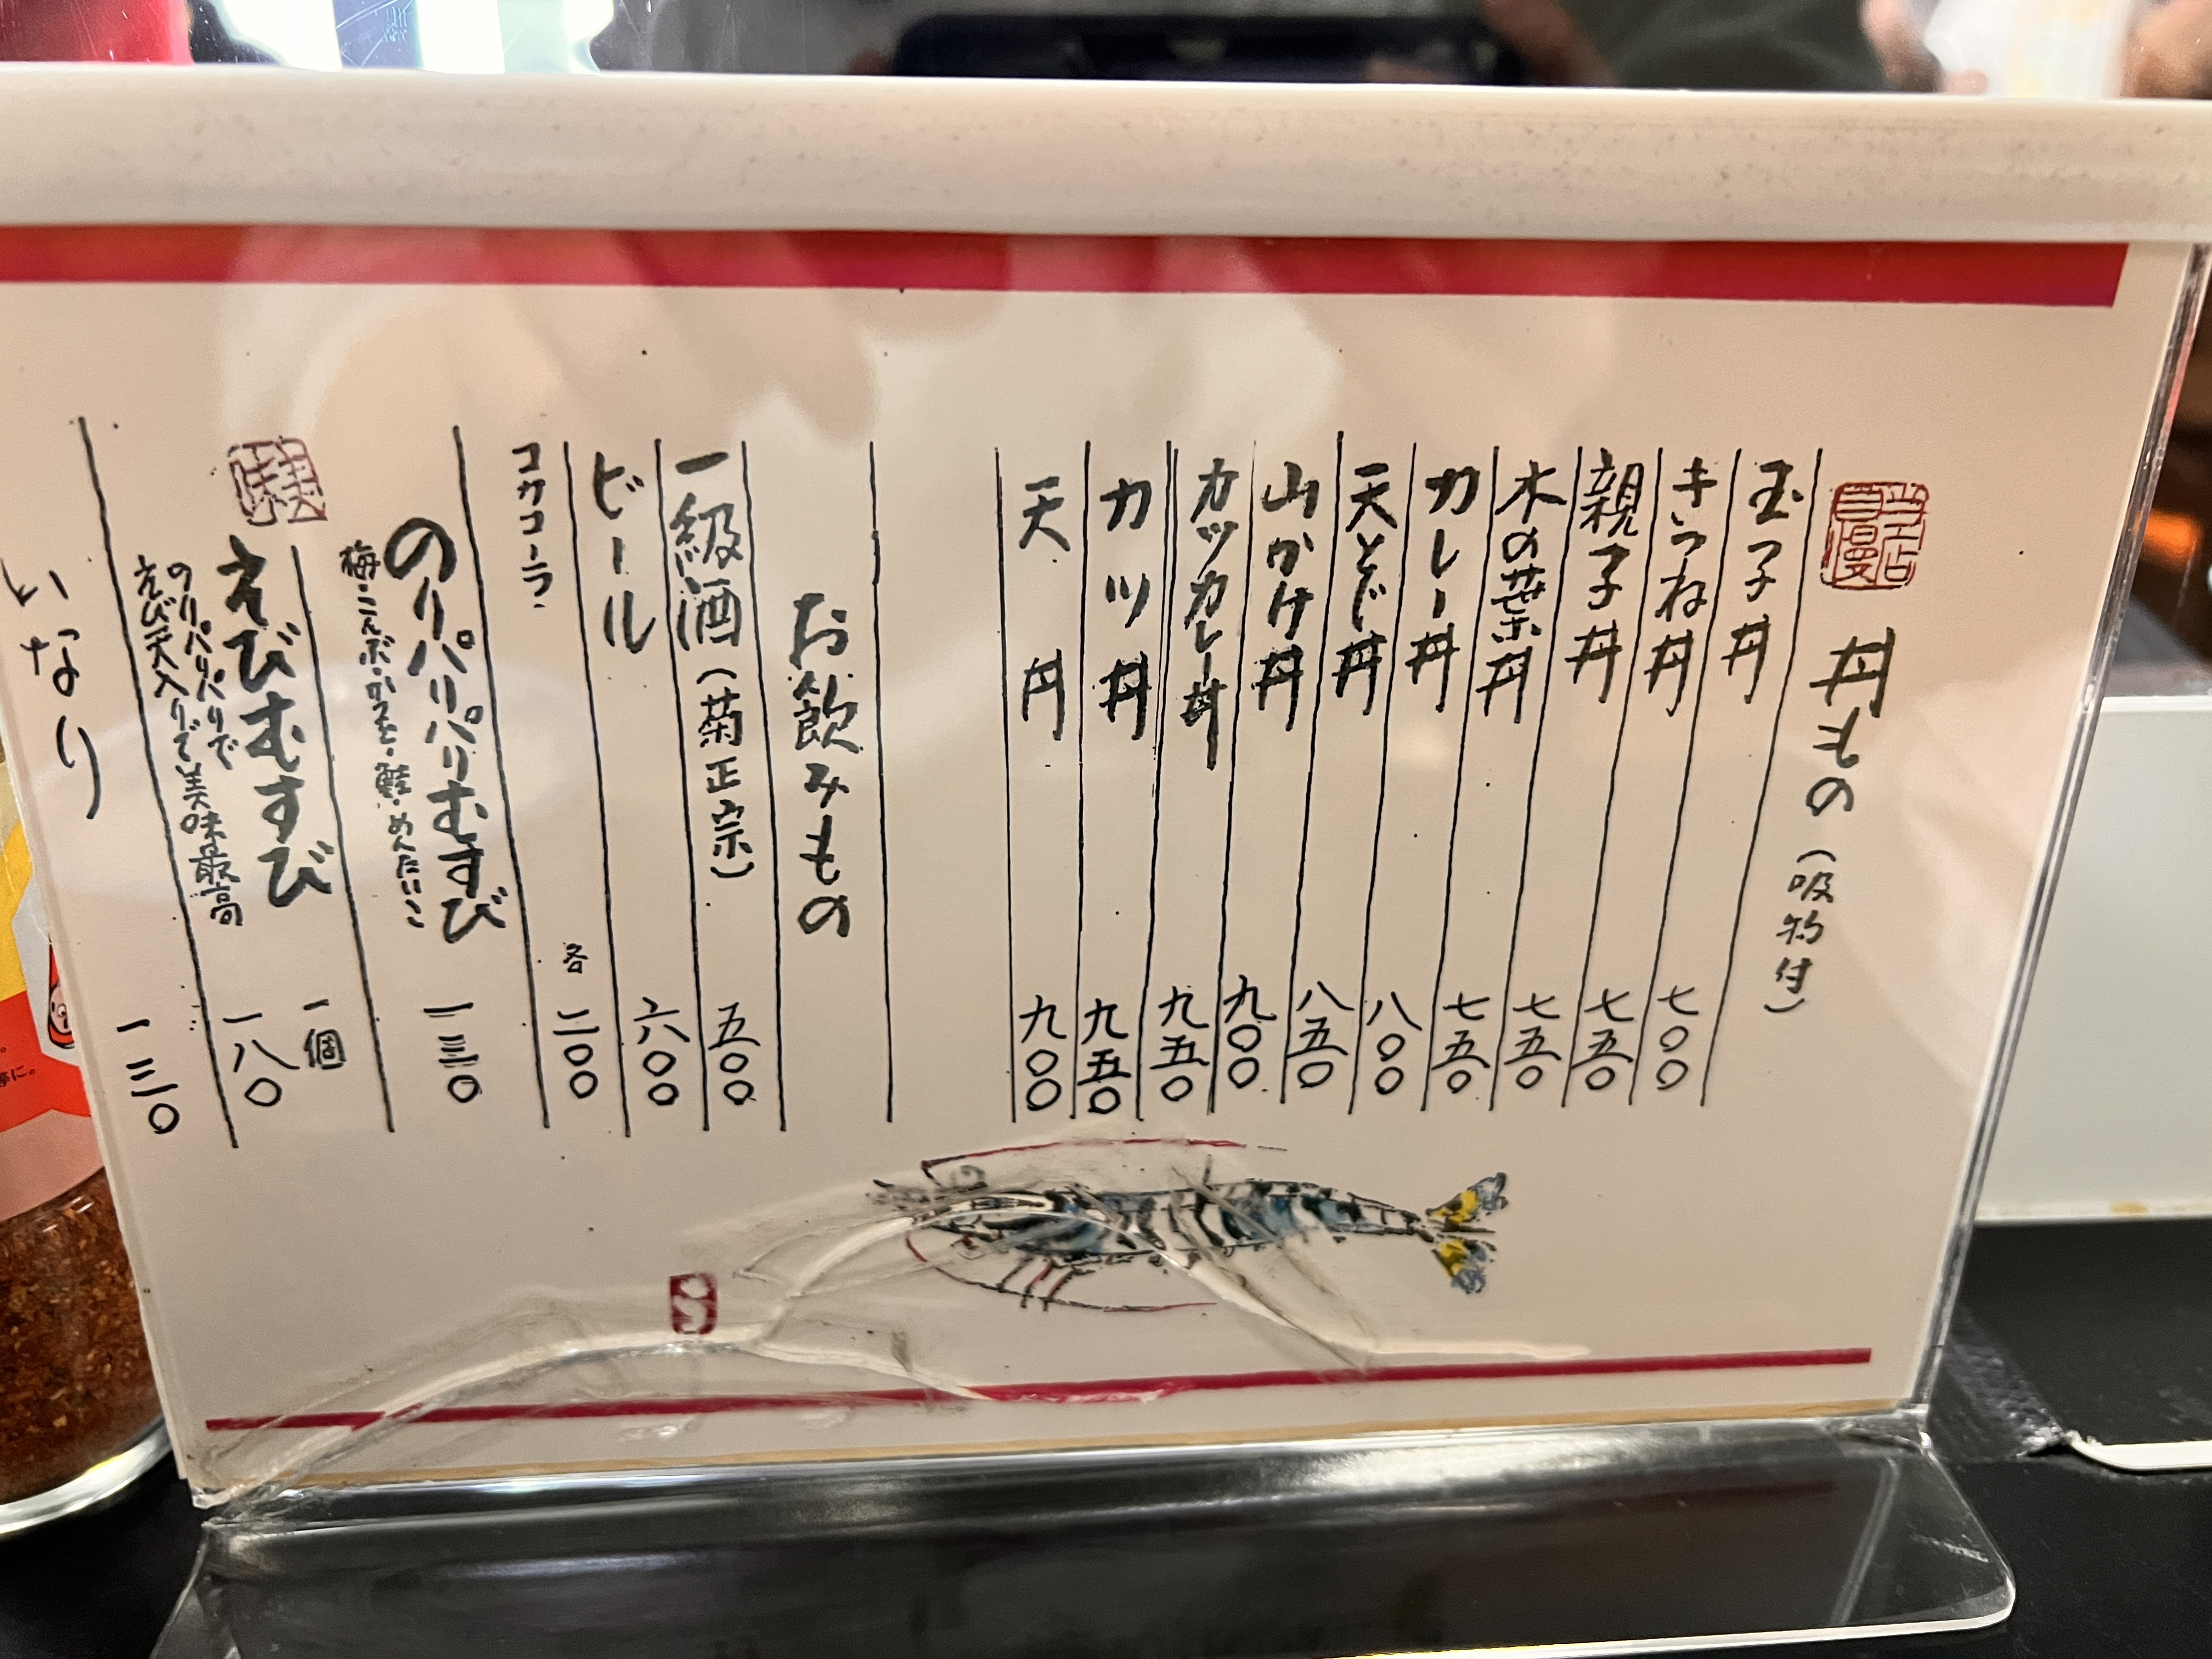 当店自慢
丼もの（吸物付）
玉子丼 七〇〇
きつね丼 七五〇
親子丼 七五〇
木の葉丼 七五〇
カレー丼 八〇〇
天とじ丼 八五〇
山かけ丼 九〇〇
カツカレー丼 九五〇
カツ丼 九五〇
天丼 九〇〇
お飲みもの
一級酒（菊正宗） 五〇〇
ビール 六〇〇
コカコーラ・ 各二〇〇
のりパリパリむすび 一三〇
梅・こんぶ・かつを・鮭・めんたいこ
美味
えびむすび 一個 一八〇
のりパリパリで
えび天入りで美味最高
いなり 一三〇